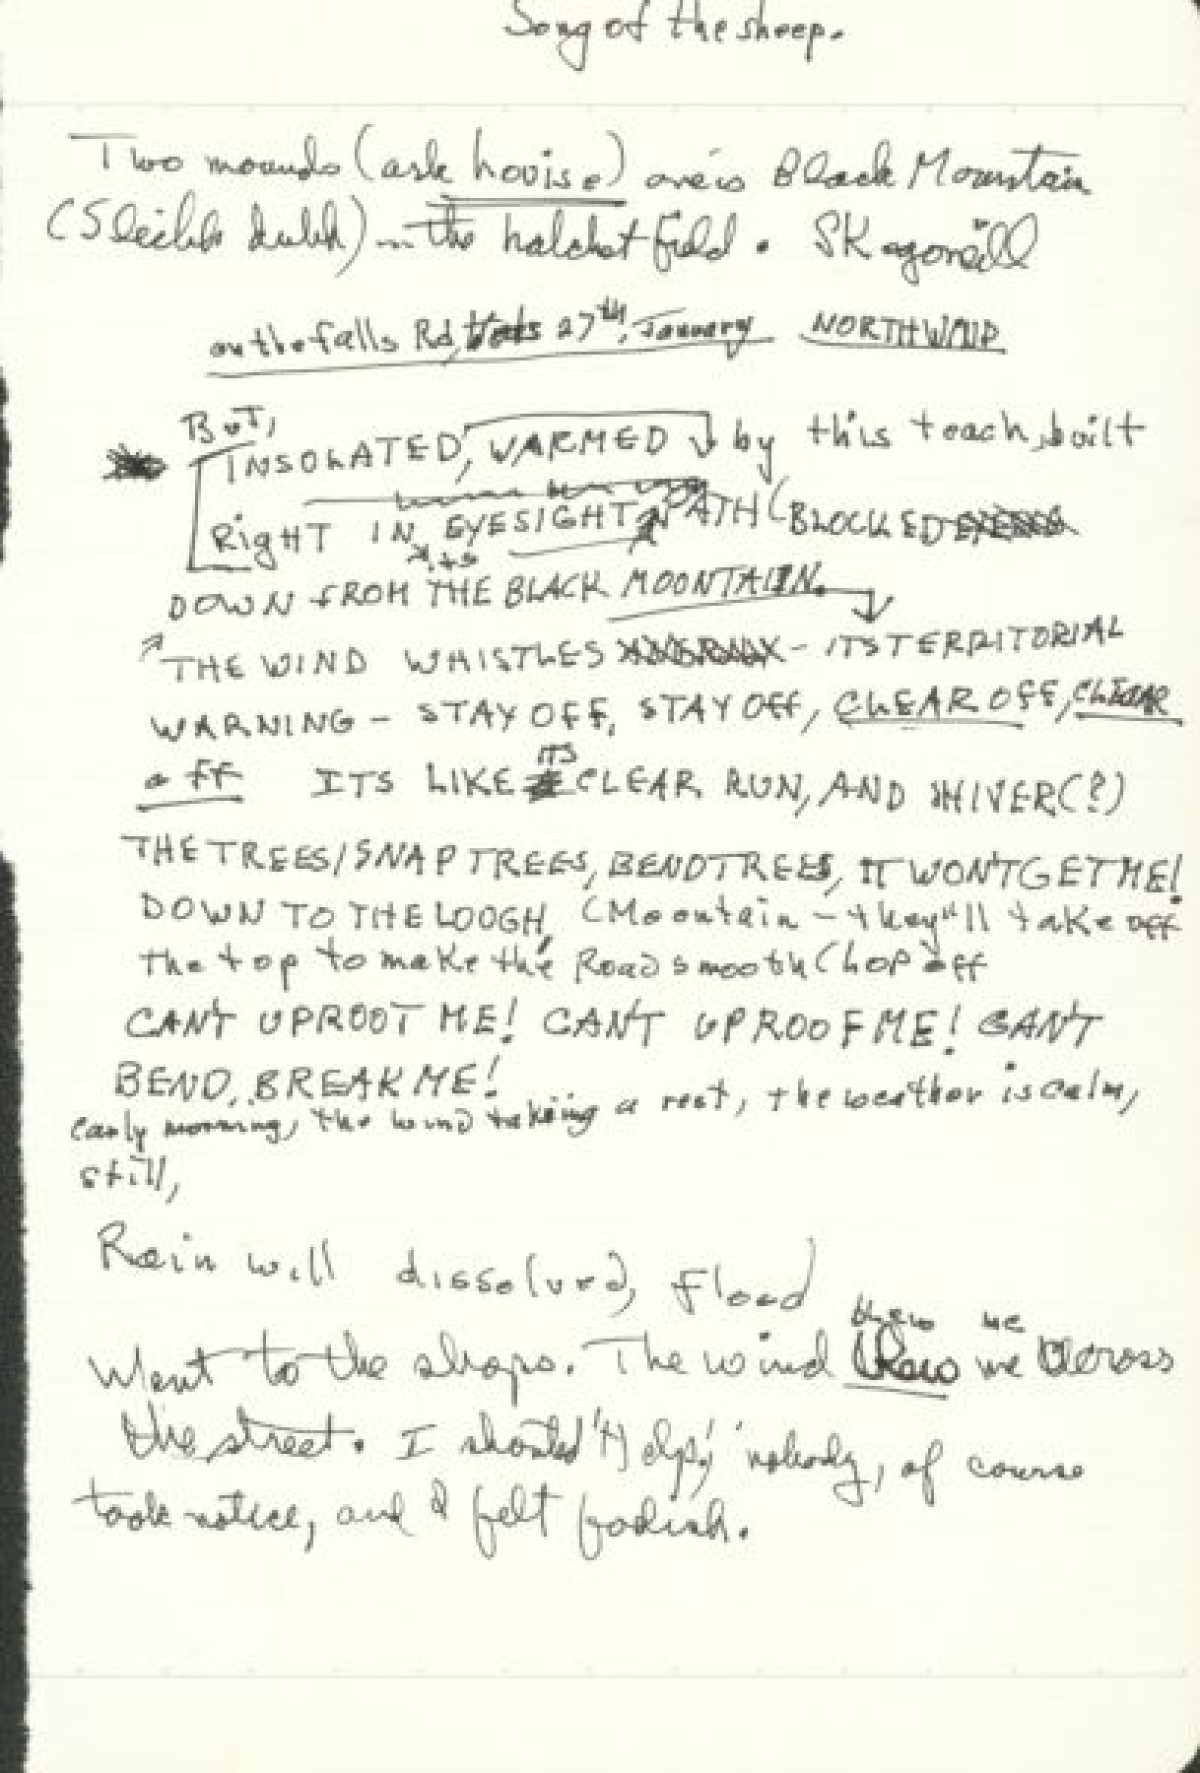 Song of the sheep.
Two mounds (ask Louise) over Black Mountain
(Sleibh dubh) in the hatchet field. SKegoneill
on the falls Rd, 27th, January NORTHWIND
BUT,
INSOLATED, WARMED by this teach, built
RIGHT IN EYESIGHT PATH (BLOCKED
its
DOWN FROM THE BLACK MOUNTAIN.
THE WIND WHISTLES - ITS TERRITORIAL
WARNING - STAY OFF, STAY OFF, CLEAR OFF, CLEAR
OFF ITS LIKE ITS CLEAR RUN, AND SHIVER(?)
THE TREES/SNAP TREES, BEND TREES, IT WON'T GET ME!
DOWN TO THE LOUGH, (Mountain - they'll take off
the top to make the Road smooth Chop off
CAN'T UPROOT ME! CAN'T UPROOF ME! CAN'T
BEND, BREAK ME!
early morning, the wind taking a rest, the weather is calm,
still,
Rain will dissolved, Flood
threw me
Went to the shops. The wind threw me across
the street. I shouted 'Help!' nobody, of course
took notice, and I felt foolish.